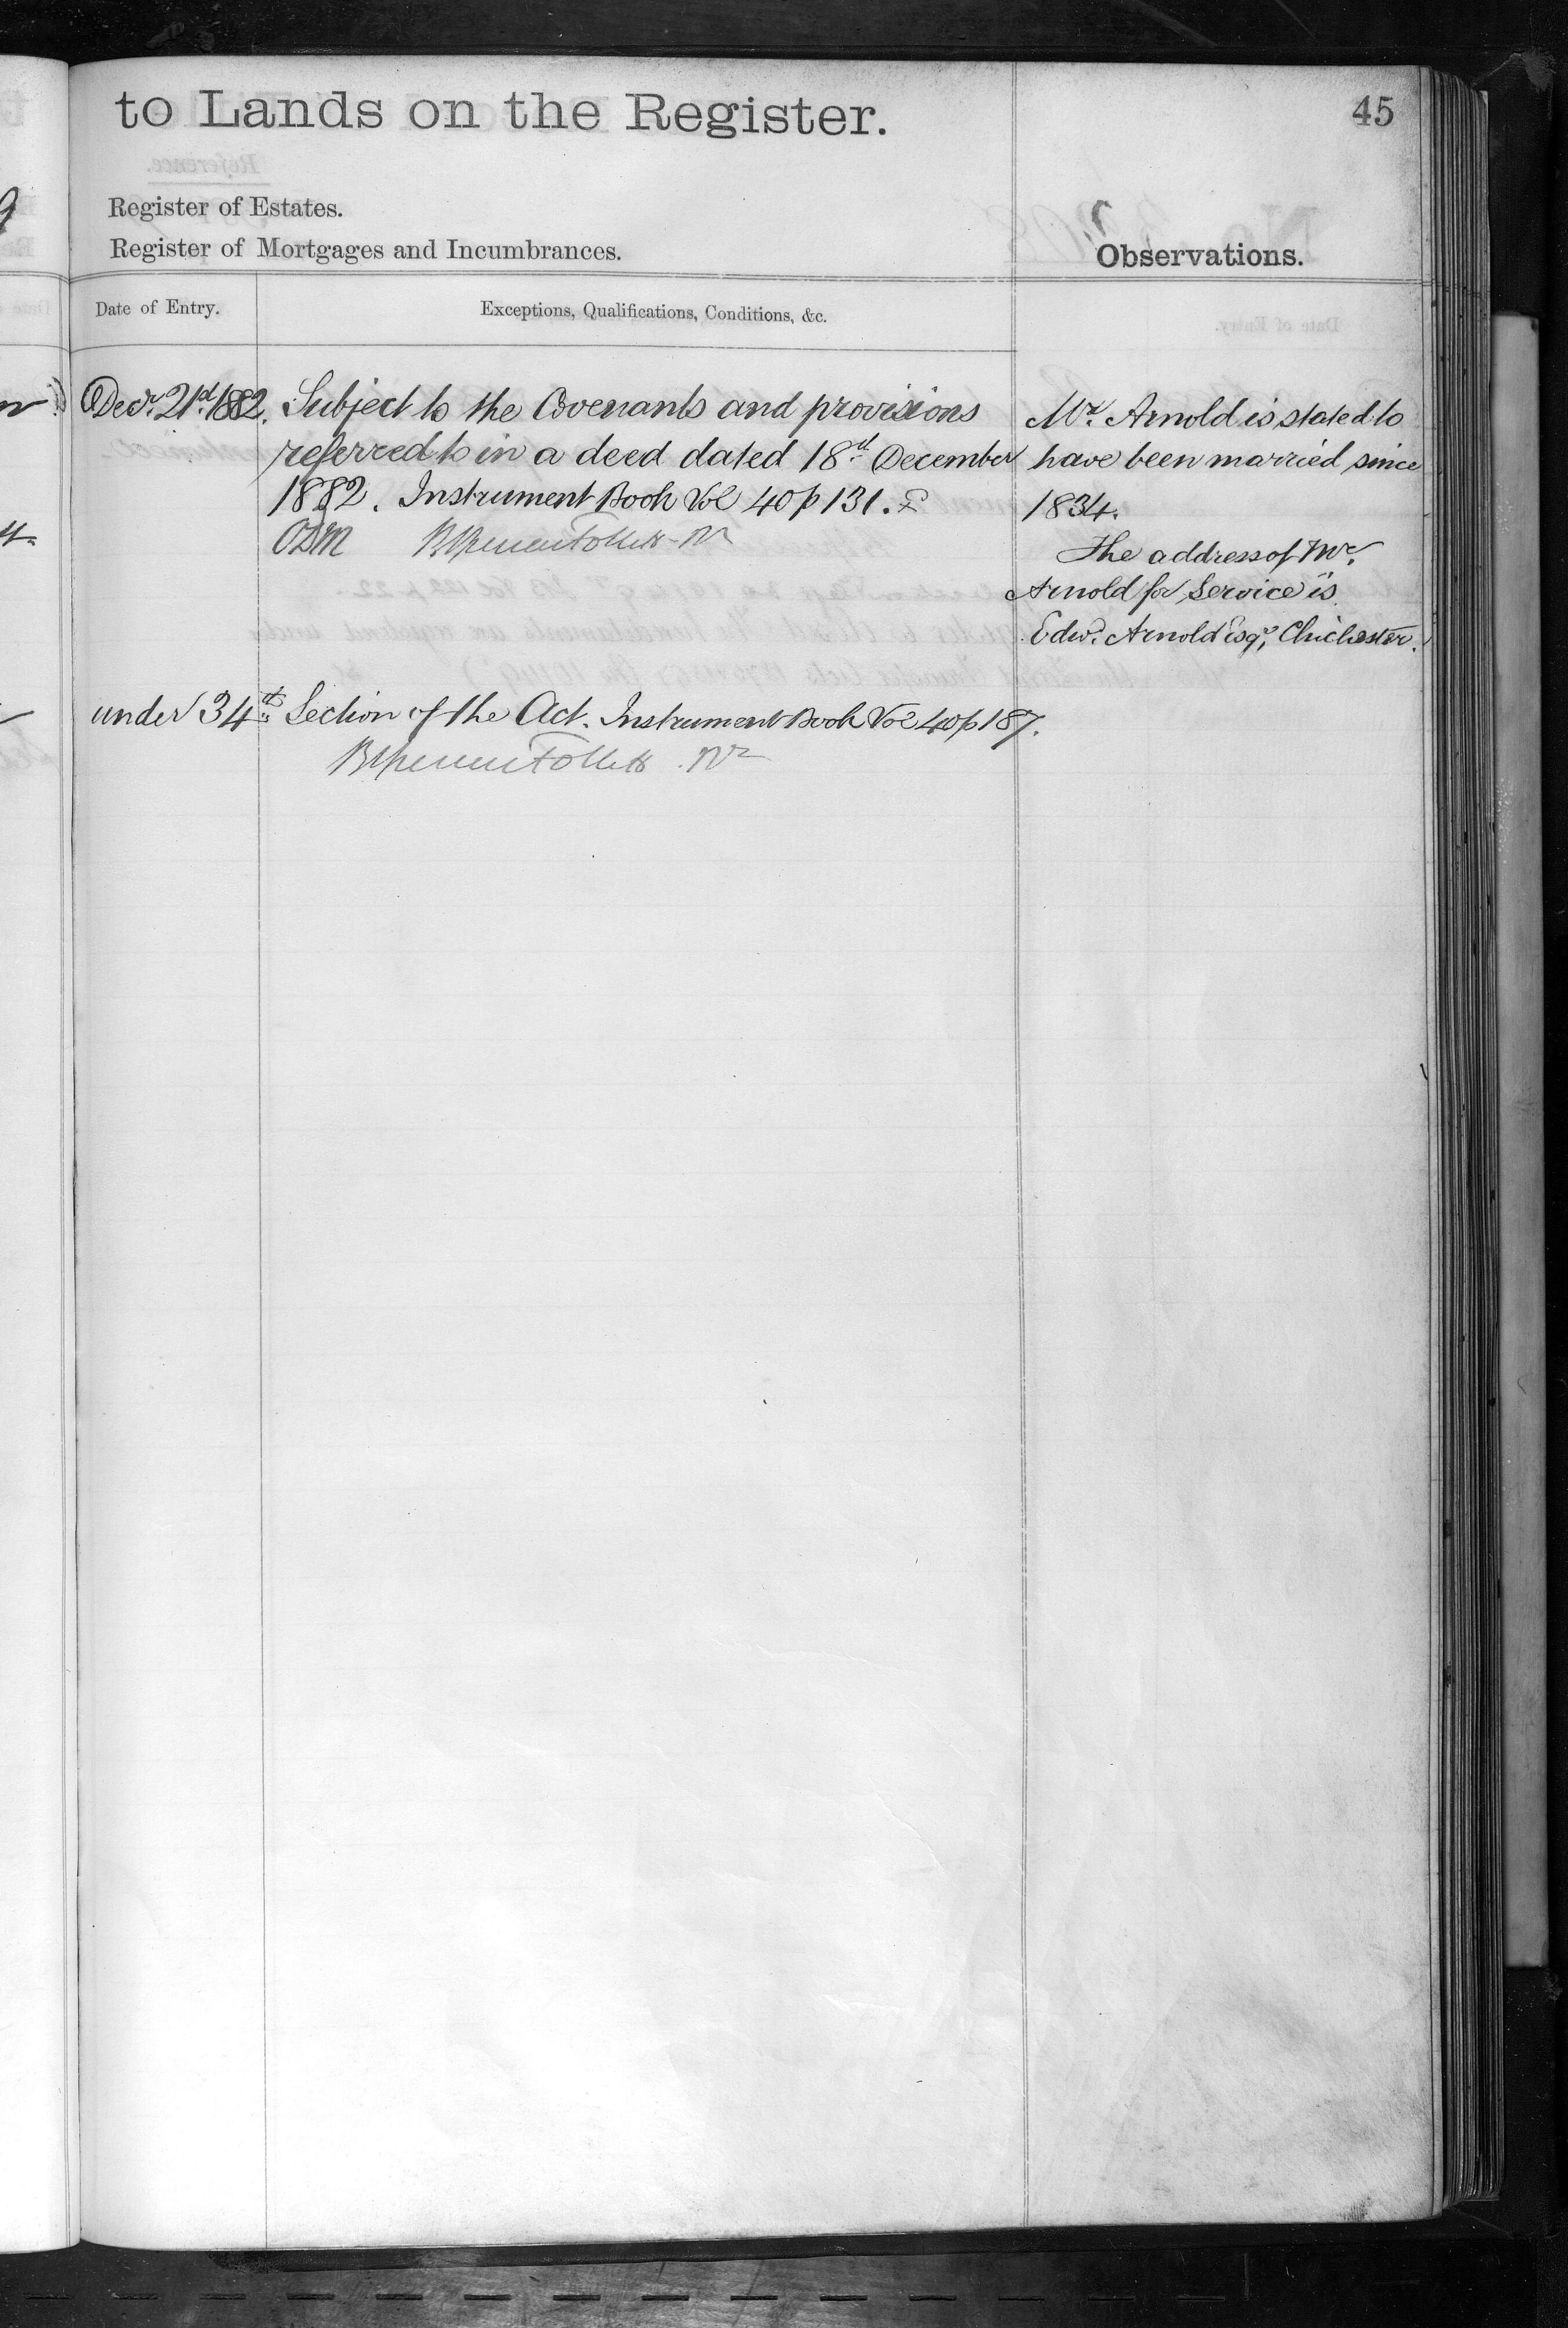 to Lands on the Register.
45
Register of Estates.
Register of Mortgages and Incumbrances.
Observations.
Date of Entry.
Exceptions, Qualifications, Conditions, &c.
Decr. 21st. 1882. Subject to the Covenants and provisions
referred to in a deed dated 18th December
1882. Instrument Book Vol 40 p 131.
Mr. Arnold is stated to
have been married since
1834.
The address of Mr.
Arnold for Service is
Edwd. Arnold Esqr, Chichester.
under 34th Section of the Act. Instrument Book Vol 40 p 187.